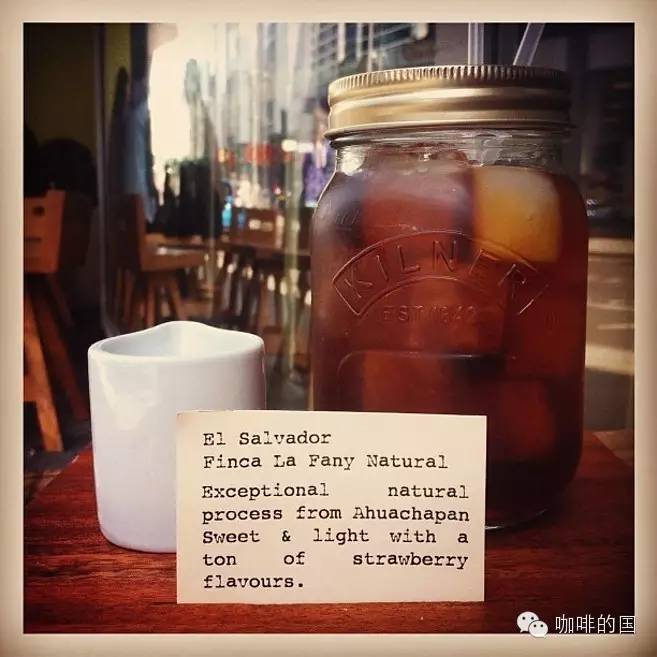 KILNER
EST 1842
El Salvador
Finca La Fany Natural
Exceptional natural
process from Ahuachapan
Sweet & light with a
ton of strawberry
flavours.
咖啡的国